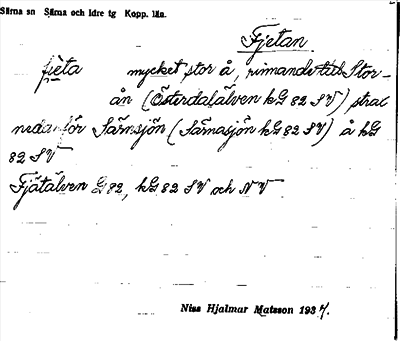 Särna sn Särna och Idre tg Kopp. län.
Fjetan
fjèta mycket stor å, rinnande till Stor-
ån (Österdalälven kG 82 SV) strax
nedanför Särnsjön (Särnasjön kG 82 SV) å kG
82 SV
Fjätälven G 82, kG 82 SV och NV
Niss Hjalmar Matsson 1937.